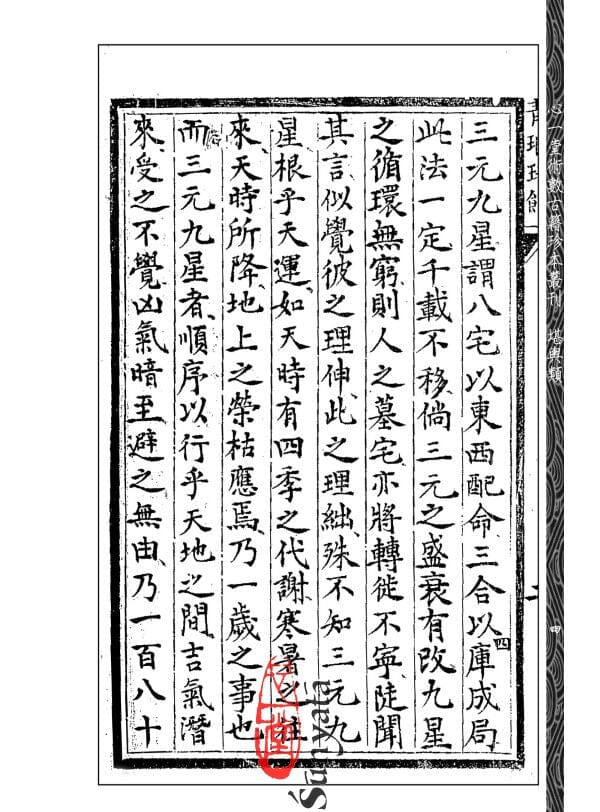 心一堂術數古籍珍本叢刊 堪輿類
四
三元九星謂八宅以東西配命三合以庫成局
四
此法一定千載不移倘三元之盛衰有改九星
之循環無窮則人之墓宅亦將轉徙不寧陡聞
其言似覺彼之理伸此之理絀殊不知三元九
星根乎天運如天時有四季之代謝寒暑之往
來天時所降地上之榮枯應焉乃一歲之事也
而三元九星者順序以行乎天地之間吉氣潛
來受之不覺凶氣暗至避之無由乃一百八十
心一堂
Śūnyatā